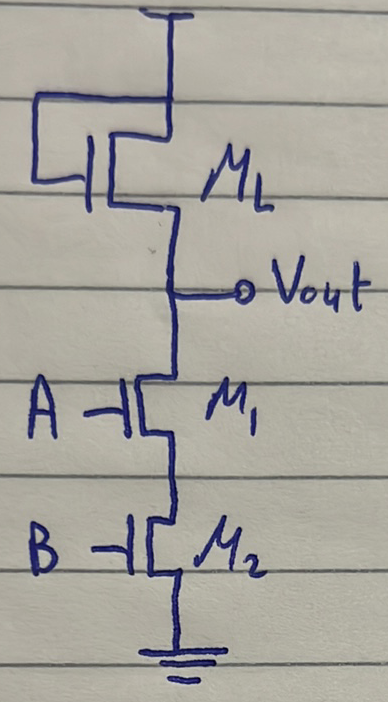 M_L
Vout
A M_1
B M_2